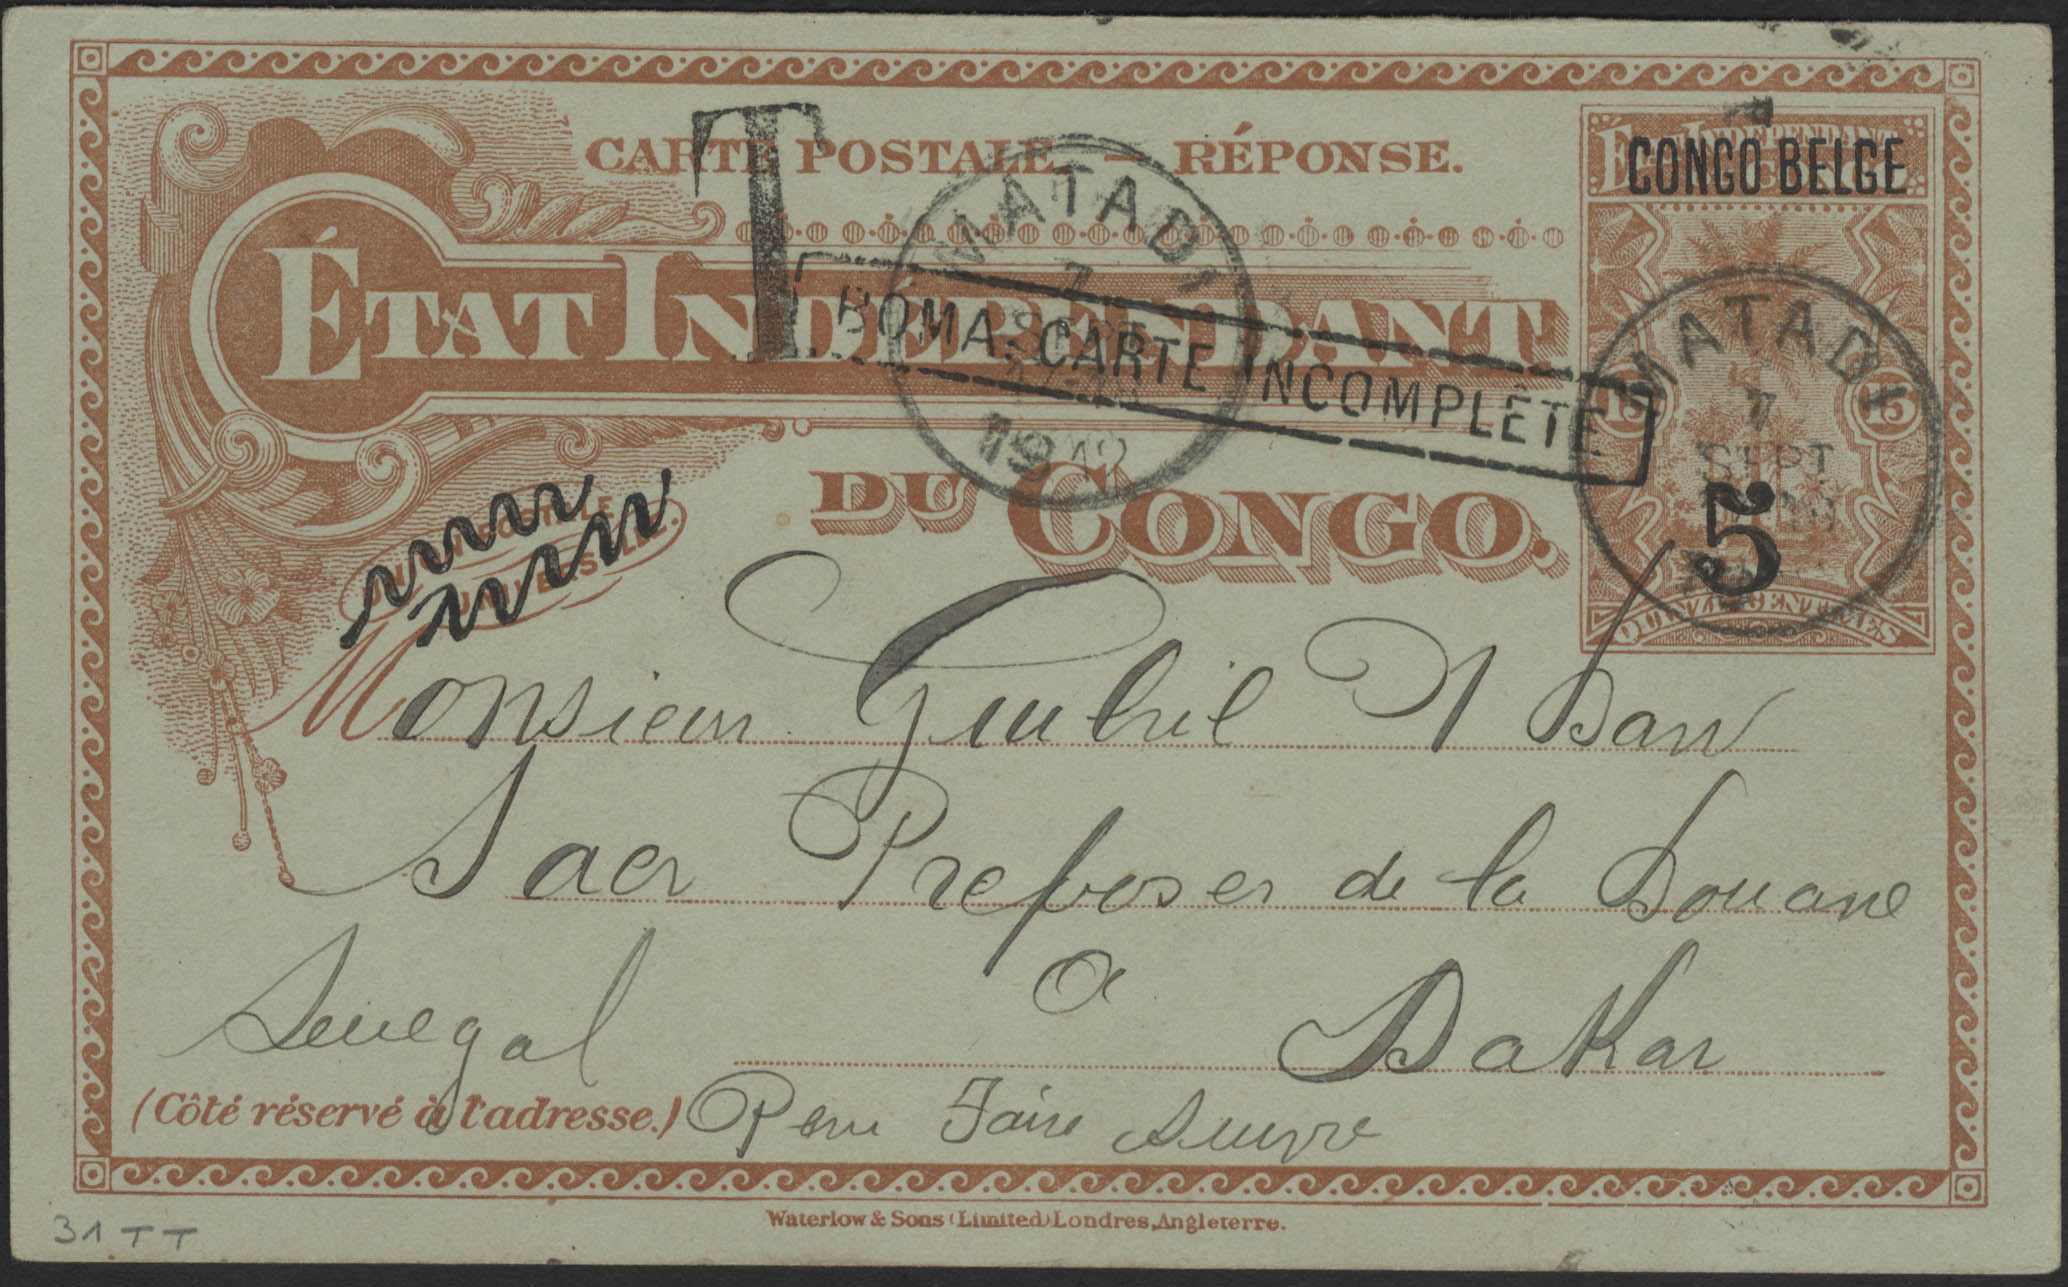 CARTE POSTALE — RÉPONSE.
T
ÉTAT INDÉPENDANT
CONGO BELGE
MATADI
7
SEPT
19
BOMA. CARTE INCOMPLÈTE
MATADI
7
SEPT
15 15
5
DU CONGO.
UNION POSTALE
UNIVERSELLE.
QUINZE CENTIMES
Monsieur
Sacr Preposer de la Douane
a
Senegal Dakar
(Côté réservé à l'adresse.) Faire Suivre
Waterlow & Sons (Limited) Londres, Angleterre.
31 TT